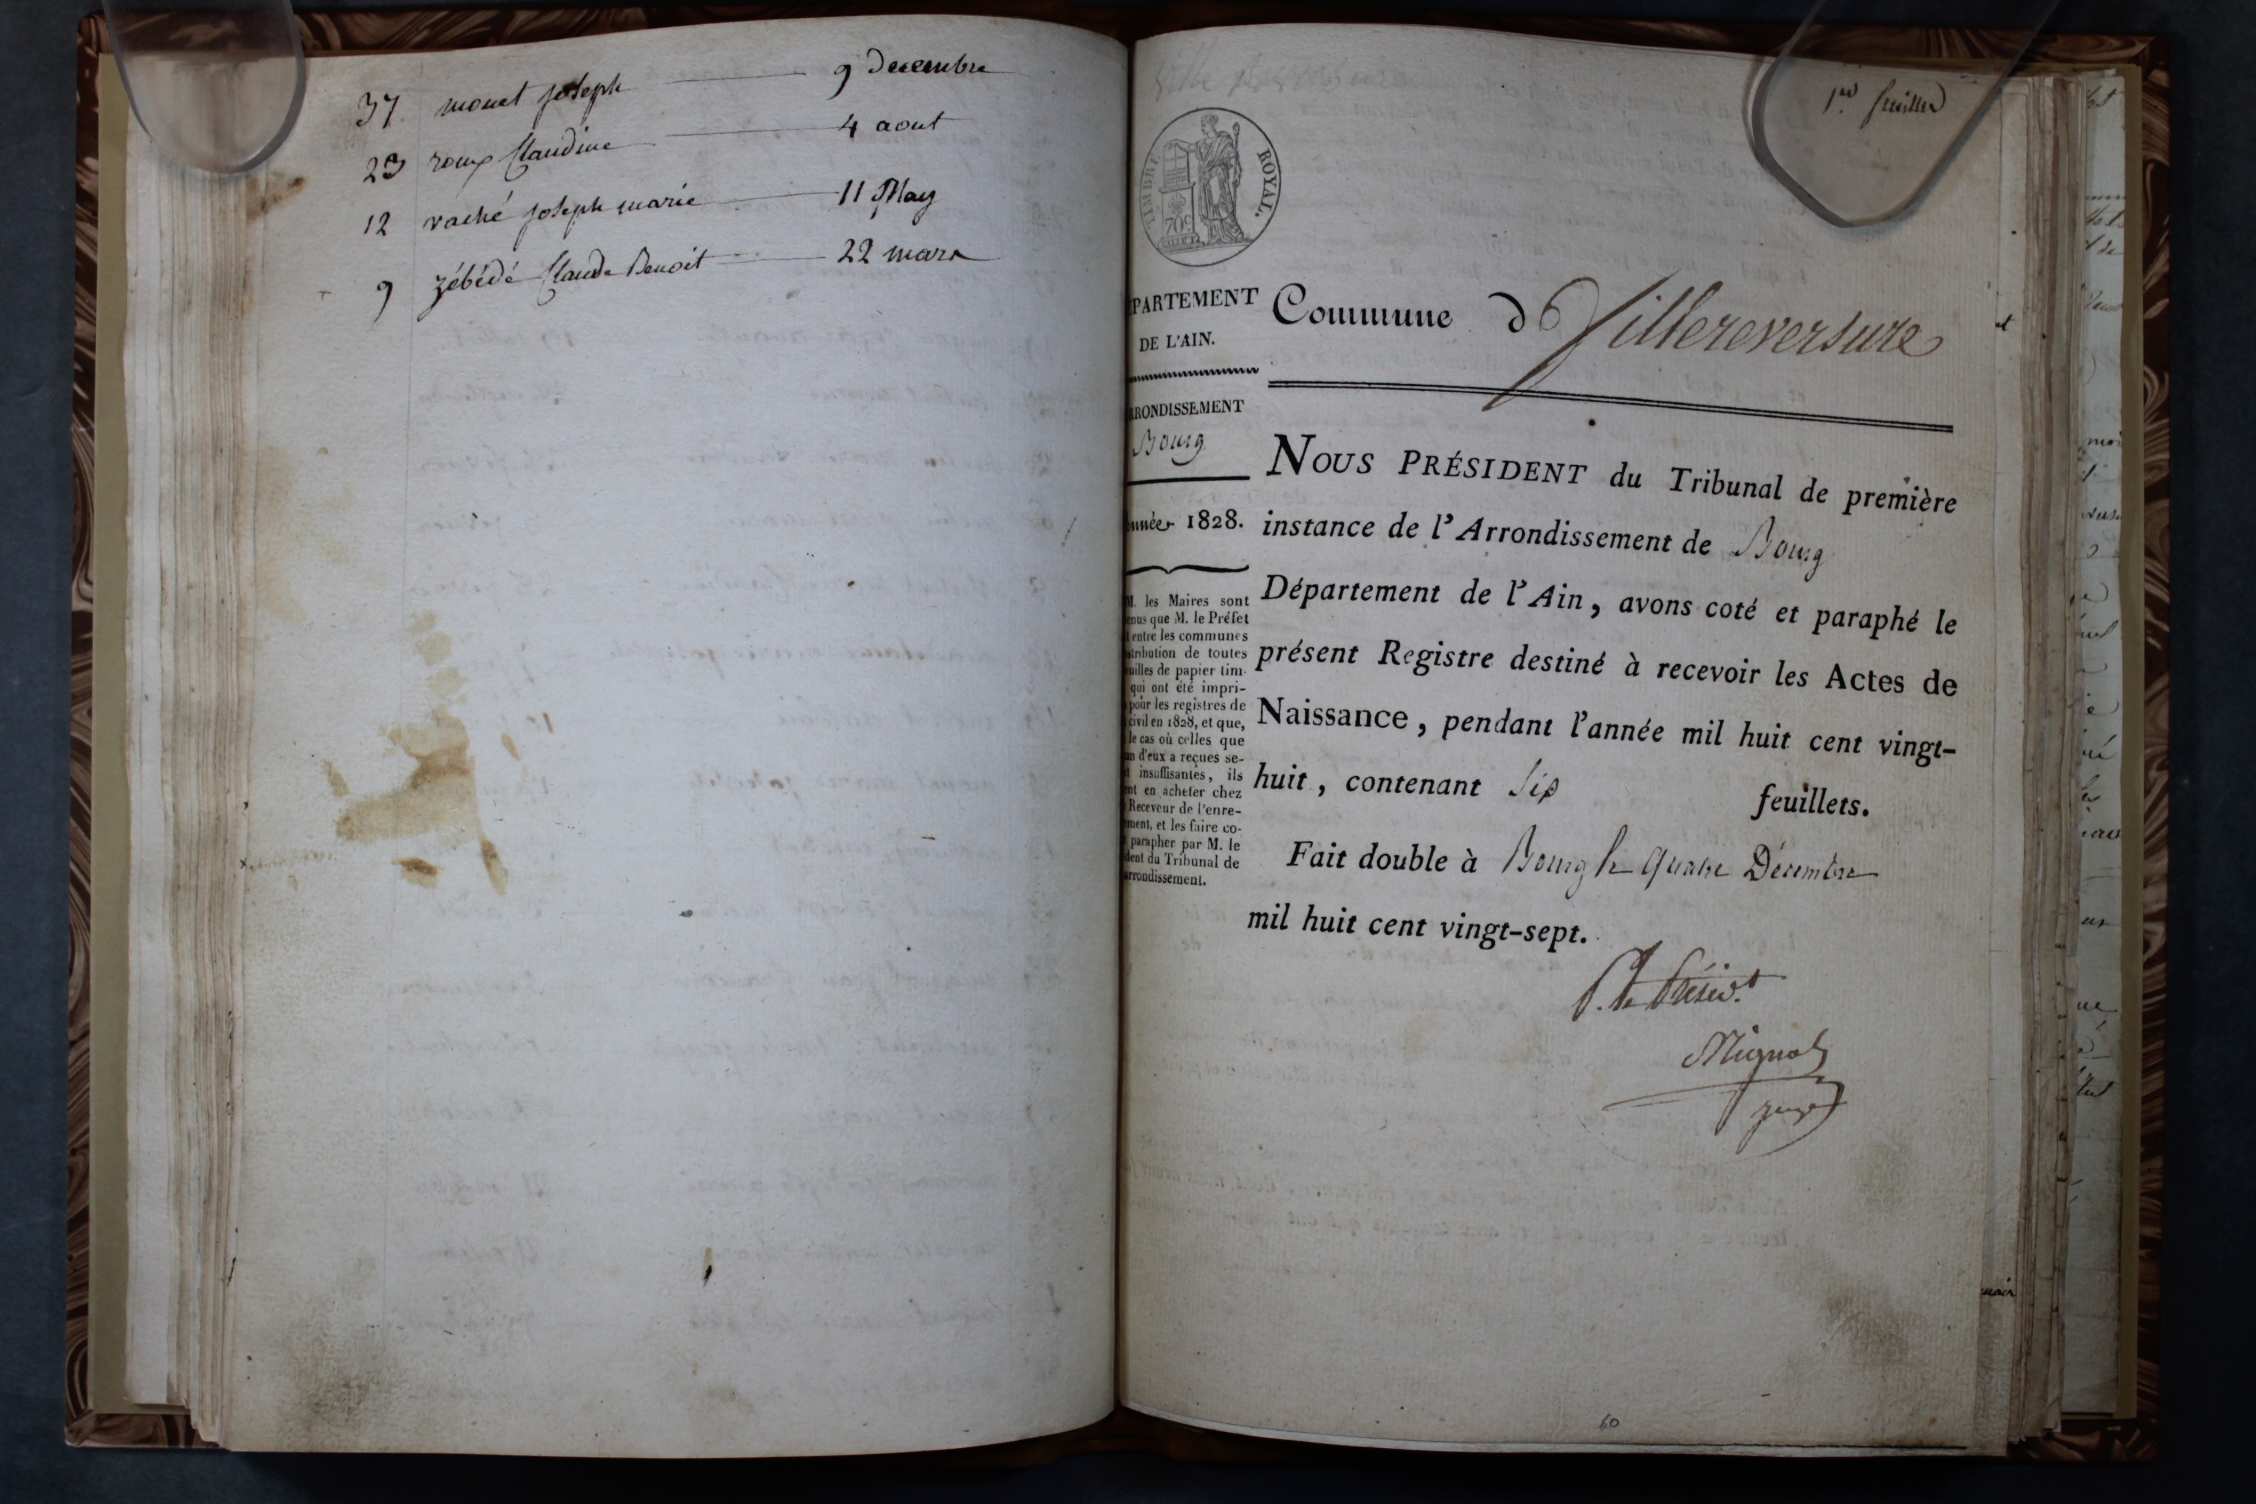 37 monet joseph 9 decembre
23 roux Claudine 4 aout
12 vaché joseph marie 11 May
9 zébédé Claude Benoit 22 mars
1er feuillet
TIMBRE ROYAL.
70c
PARTEMENT
DE L'AIN.
RRONDISSEMENT
Bourg
nnée 1828.
M. les Maires sont
enus que M. le Préfet
entre les communes
stribution de toutes
uilles de papier tim-
qui ont été impri-
pour les registres de
civil en 1828, et que,
le cas où celles que
un d'eux a reçues se-
t insuffisantes, ils
ent en acheter chez
Receveur de l'enre-
ment, et les faire co-
parapher par M. le
dent du Tribunal de
rrondissement.
Commune d Villereversure
NOUS PRÉSIDENT du Tribunal de première
instance de l'Arrondissement de Bourg
Département de l'Ain, avons coté et paraphé le
présent Registre destiné à recevoir les Actes de
Naissance, pendant l'année mil huit cent vingt-
huit, contenant Six feuillets.
Fait double à Bourg le quatre Décembre
mil huit cent vingt-sept.
P. le Présidt
Mignot
juge
60